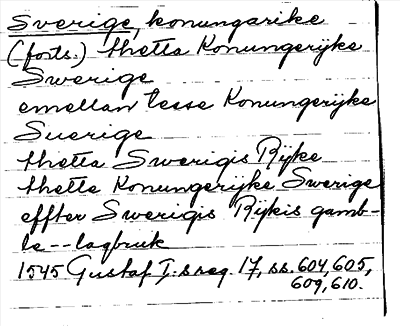 Sverige, konungarike
(forts.) thetta Konungerijke
Swerige
emellan tesse Konungerijke
Suerige
thetta Swerigis Rijke
thette Konungerijke Swerige
effter Swerigis Rijkis gamb-
le -- lagbruk
1545 Gustaf I:s reg. 17, ss. 604, 605,
609, 610.